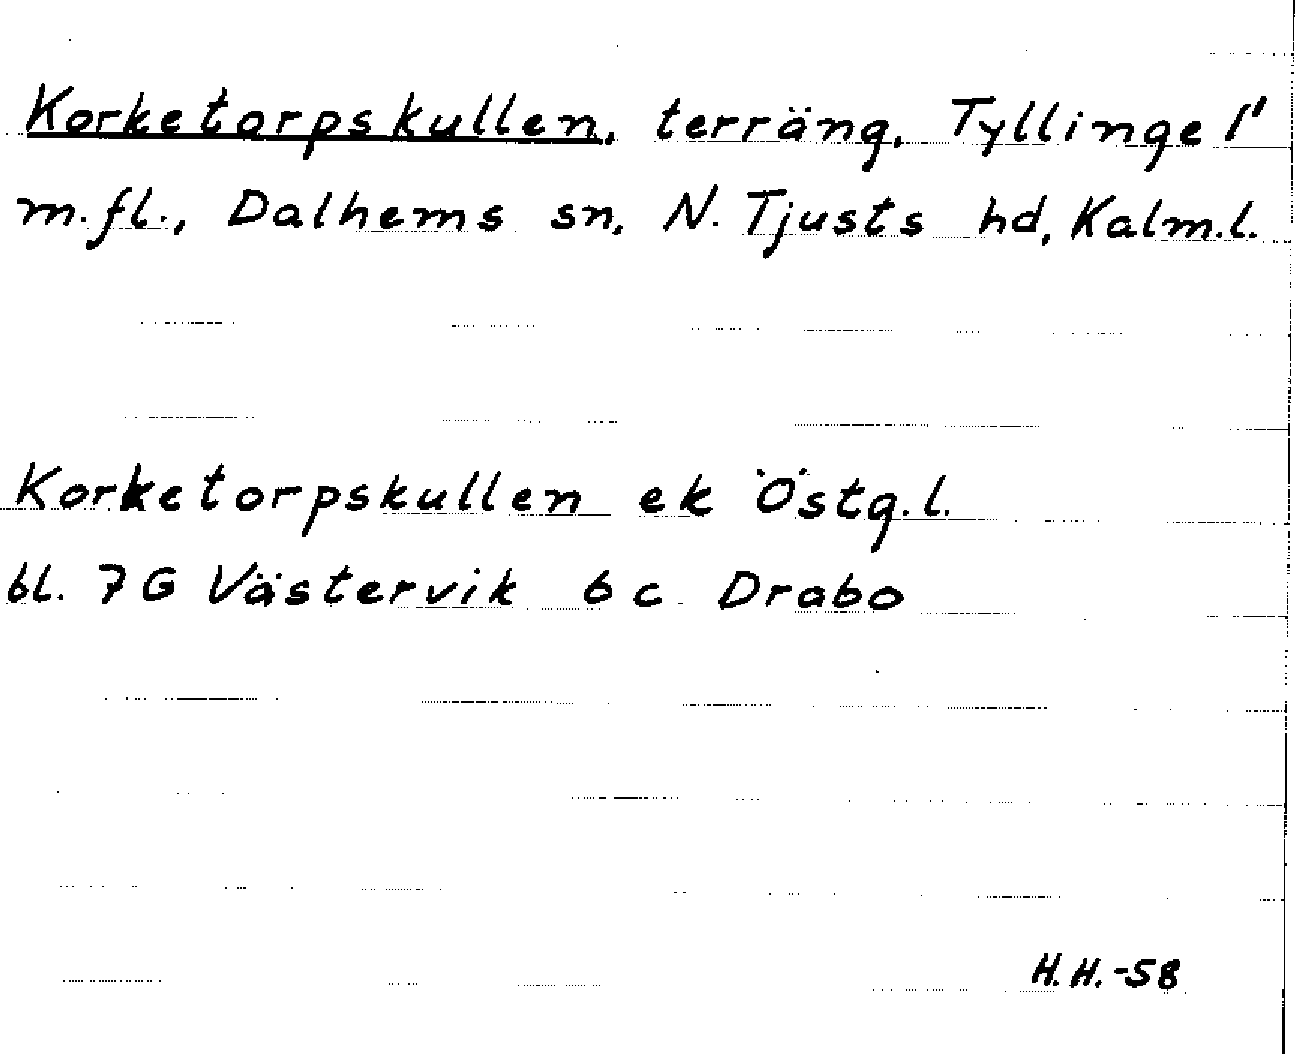 Korketorpskullen, terräng, Tyllinge 1'
m.fl., Dalhems sn, N. Tjusts hd, Kalm.l.
Korketorpskullen ek Östg.l.
bl. 7G Västervik 6 c Drabo
H.H.-58